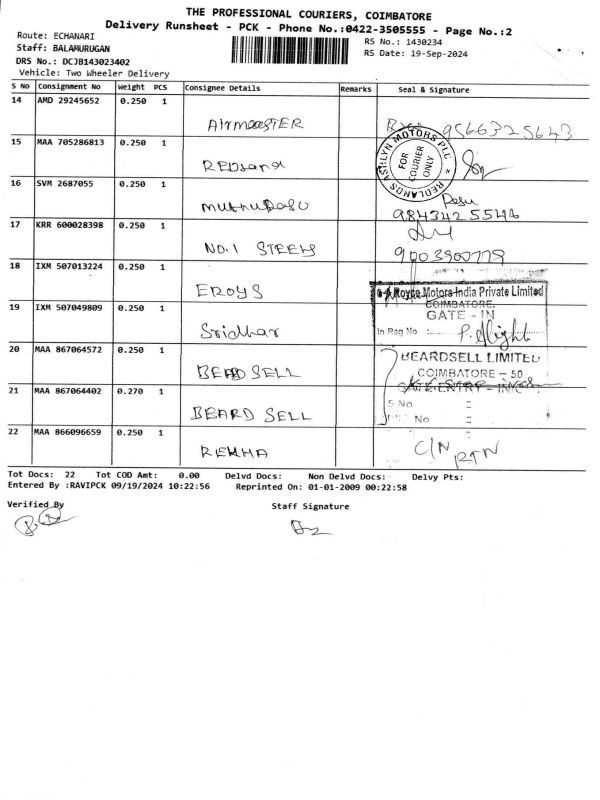 THE PROFESSIONAL COURIERS, COIMBATORE
Delivery Runsheet - PCK - Phone No.:0422-3505555 - Page No.:2
Route: ECHANARI
RS No.: 1430234
Staff: BALAMURUGAN
RS Date: 19-Sep-2024
DRS No.: DCJB143023402
Vehicle: Two Wheeler Delivery
S No Consignment No Weight PCS Consignee Details Remarks Seal & Signature
14 AMD 29245652 0.250 1
AIRMASTER 9566325643
15 MAA 705286813 0.250 1
REDLAND
ASHLYN MOTORS PLC * REDLANDS *
FOR COURIER ONLY
16 SVM 2687055 0.250 1
muthuRasu
9843425546
17 KRR 600028398 0.250 1
NO.1 STEELS 9003900779
18 IXM 507013224 0.250 1
EROYS
Royce Motors India Private Limited
COIMBATORE.
GATE - IN
19 IXM 507049809 0.250 1
In Reg No
Sridhar
20 MAA 867064572 0.250 1
BEARDSELL LIMITED
BEARD SELL
COIMBATORE - 50
21 MAA 867064402 0.270 1
GATE ENTRY - INWARD
S No :
BEARD SELL
No :
22 MAA 866096659 0.250 1
REKHA
C/N RTN
Tot Docs: 22 Tot COD Amt: 0.00 Delvd Docs: Non Delvd Docs: Delvy Pts:
Entered By :RAVIPCK 09/19/2024 10:22:56 Reprinted On: 01-01-2009 00:22:58
Verified By
Staff Signature